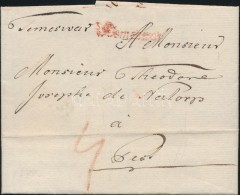 Temeswar
A Monsieur
Monsieur Theodore
Joseph de Natorp
à
Pest